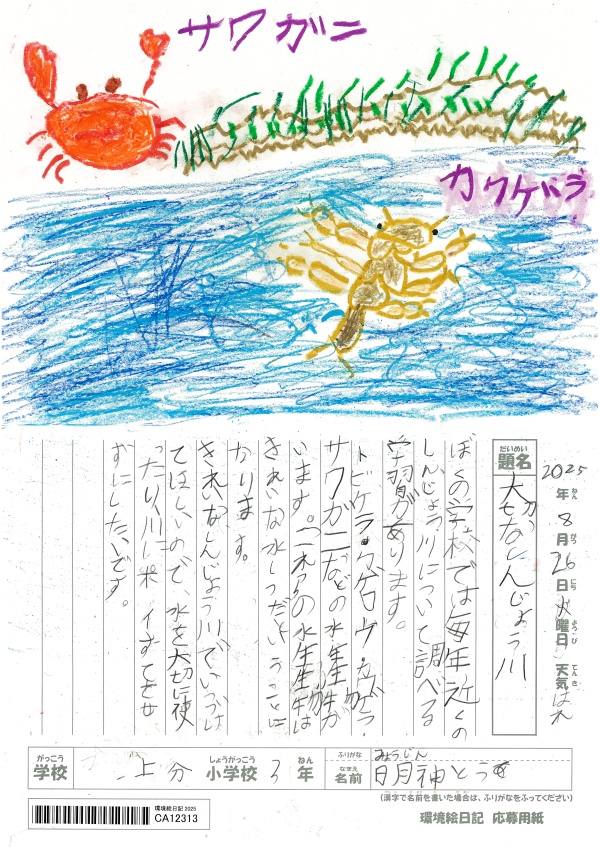 サワガニ
カワゲラ
2025年8月26日火曜日 天気はれ
ねん がつ にち ようび てんき
だいめい
題名
大切なしんじょう川
ぼくの学校では毎年近くの
しんじょう川について調べる
学習があります。
トビケラ・カゲロウ・カワゲラ・
サワガニなどの水生生物が
います。これらの水生生物は
きれいな水しつだということに
かります。
きれいなしんじょう川でいつづけ
てほしいので、水を大切に使
ったり、川にポイすてをせ
ずにしたいです。
がっこう
学校
上分
しょうがっこう
小学校
3
ねん
年
ふりがな
みょうじん
なまえ
名前
明神とうま
(漢字で名前を書いた場合は、ふりがなをふってください)
環境絵日記 2025
CA12313
環境絵日記 応募用紙